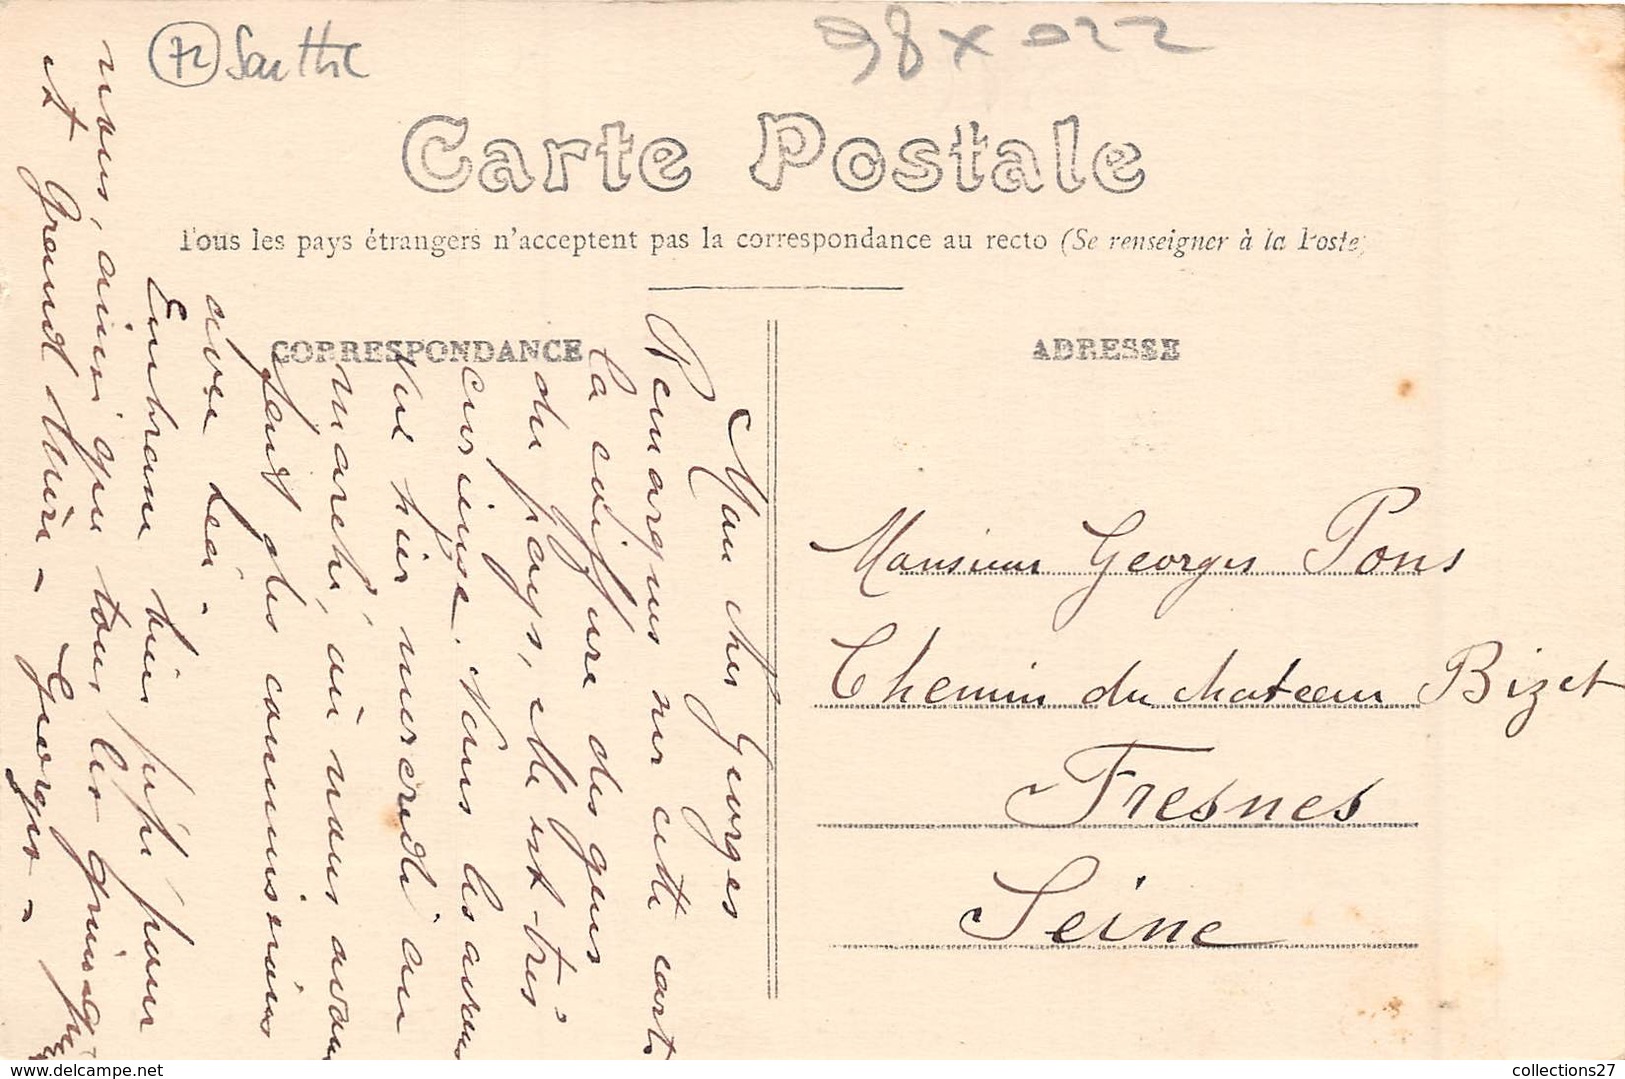 72 Sarthe
98 x 022
Carte Postale
Tous les pays étrangers n'acceptent pas la correspondance au recto (Se renseigner à la Poste)
CORRESPONDANCE
ADRESSE
Mon cher Georges
Remarques sur cette carte
la coiffure des gens
du pays, elle est très
curieuse. Nous les avons
vue hier mercredi au
marché, où nous avons
faut des commissions
avec Léa.
Embrasse bien pépé pour
nous, ainsi que tous les
et Grand Mère - Georges -
Monsieur Georges Pons
Chemin du chateau Bizet
Fresnes
Seine
collections27